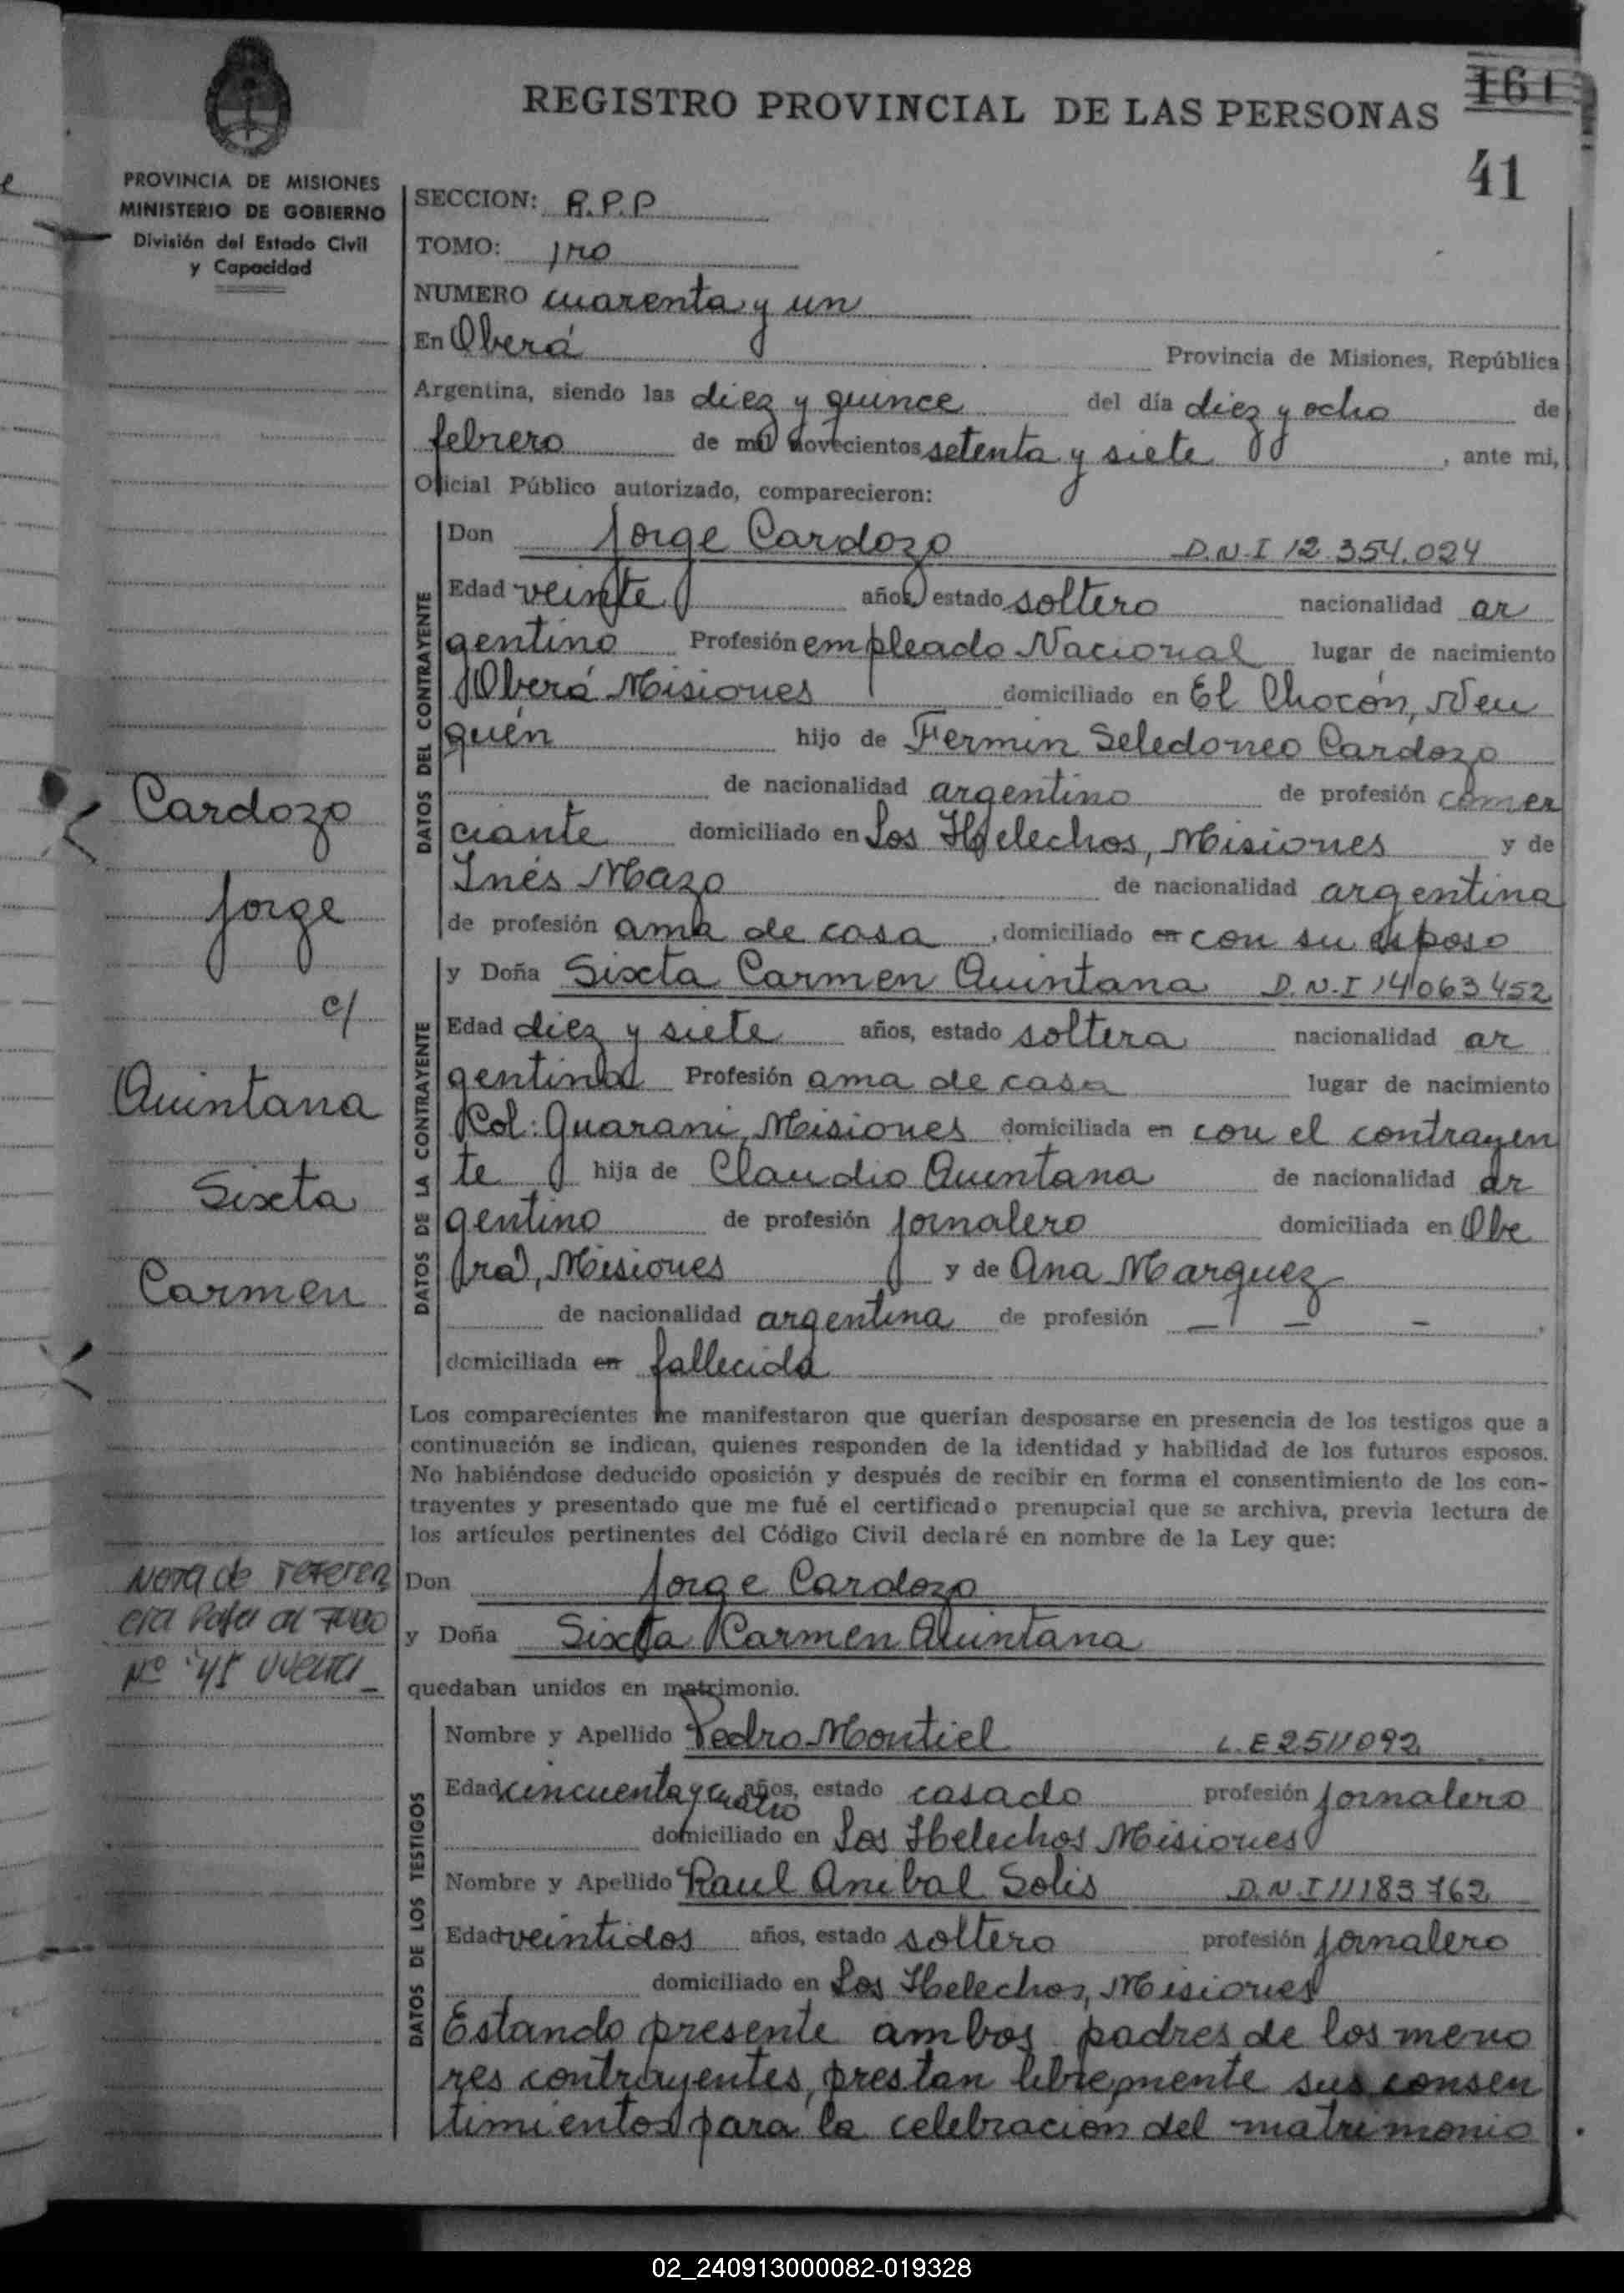 161
REGISTRO PROVINCIAL DE LAS PERSONAS
41
PROVINCIA DE MISIONES
MINISTERIO DE GOBIERNO
División del Estado Civil
y Capacidad
SECCION: R.P.P
TOMO: 1ro
NUMERO cuarenta y un
En Oberá Provincia de Misiones, República
Argentina, siendo las diez y quince del día diez y ocho de
febrero de mil novecientos setenta y siete, ante mi,
Oficial Público autorizado, comparecieron:
DATOS DEL CONTRAYENTE
Don Jorge Cardozo D.N.I 12.354.024
Edad veinte años, estado soltero nacionalidad ar
gentino Profesión empleado Nacional lugar de nacimiento
Oberá Misiones domiciliado en El Chocón, Neu
quén hijo de Fermin Seledoneo Cardozo
de nacionalidad argentino de profesión comer
ciante domiciliado en Los Helechos, Misiones y de
Inés Mazo de nacionalidad argentina
de profesión ama de casa, domiciliado en con su esposo
DATOS DE LA CONTRAYENTE
y Doña Sixta Carmen Quintana D.N.I 14063452
Edad diez y siete años, estado soltera nacionalidad ar
gentina Profesión ama de casa lugar de nacimiento
Col: Guarani, Misiones domiciliada en con el contrayen
te hija de Claudio Quintana de nacionalidad ar
gentino de profesión jornalero domiciliada en Obe
ra, Misiones y de Ana Marquez
de nacionalidad argentina de profesión - - -
domiciliada en fallecida
Cardozo
Jorge
c/
Quintana
Sixta
Carmen
Los comparecientes me manifestaron que querían desposarse en presencia de los testigos que a
continuación se indican, quienes responden de la identidad y habilidad de los futuros esposos.
No habiéndose deducido oposición y después de recibir en forma el consentimiento de los con-
trayentes y presentado que me fué el certificado prenupcial que se archiva, previa lectura de
los artículos pertinentes del Código Civil declaré en nombre de la Ley que:
Don Jorge Cardozo
y Doña Sixta Carmen Quintana
quedaban unidos en matrimonio.
Nota de referen
cia Pasa al
Nº 45 vuelta_
DATOS DE LOS TESTIGOS
Nombre y Apellido Pedro Montiel L.E 2511092
Edad cincuenta y cuatro años, estado casado profesión jornalero
domiciliado en Los Helechos Misiones
Nombre y Apellido Raul Anibal Solis D.N.I 11183762
Edad veintidos años, estado soltero profesión jornalero
domiciliado en Los Helechos, Misiones
Estando presente ambos padres de los meno
res contrayentes, prestan libremente sus consen
timientos para la celebracion del matrimonio
02_240913000082-019328